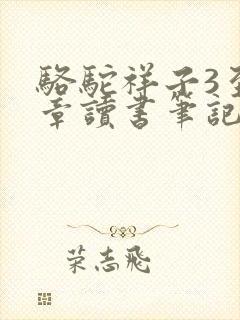 駱駝祥子3至
章讀書筆記
荣志飛